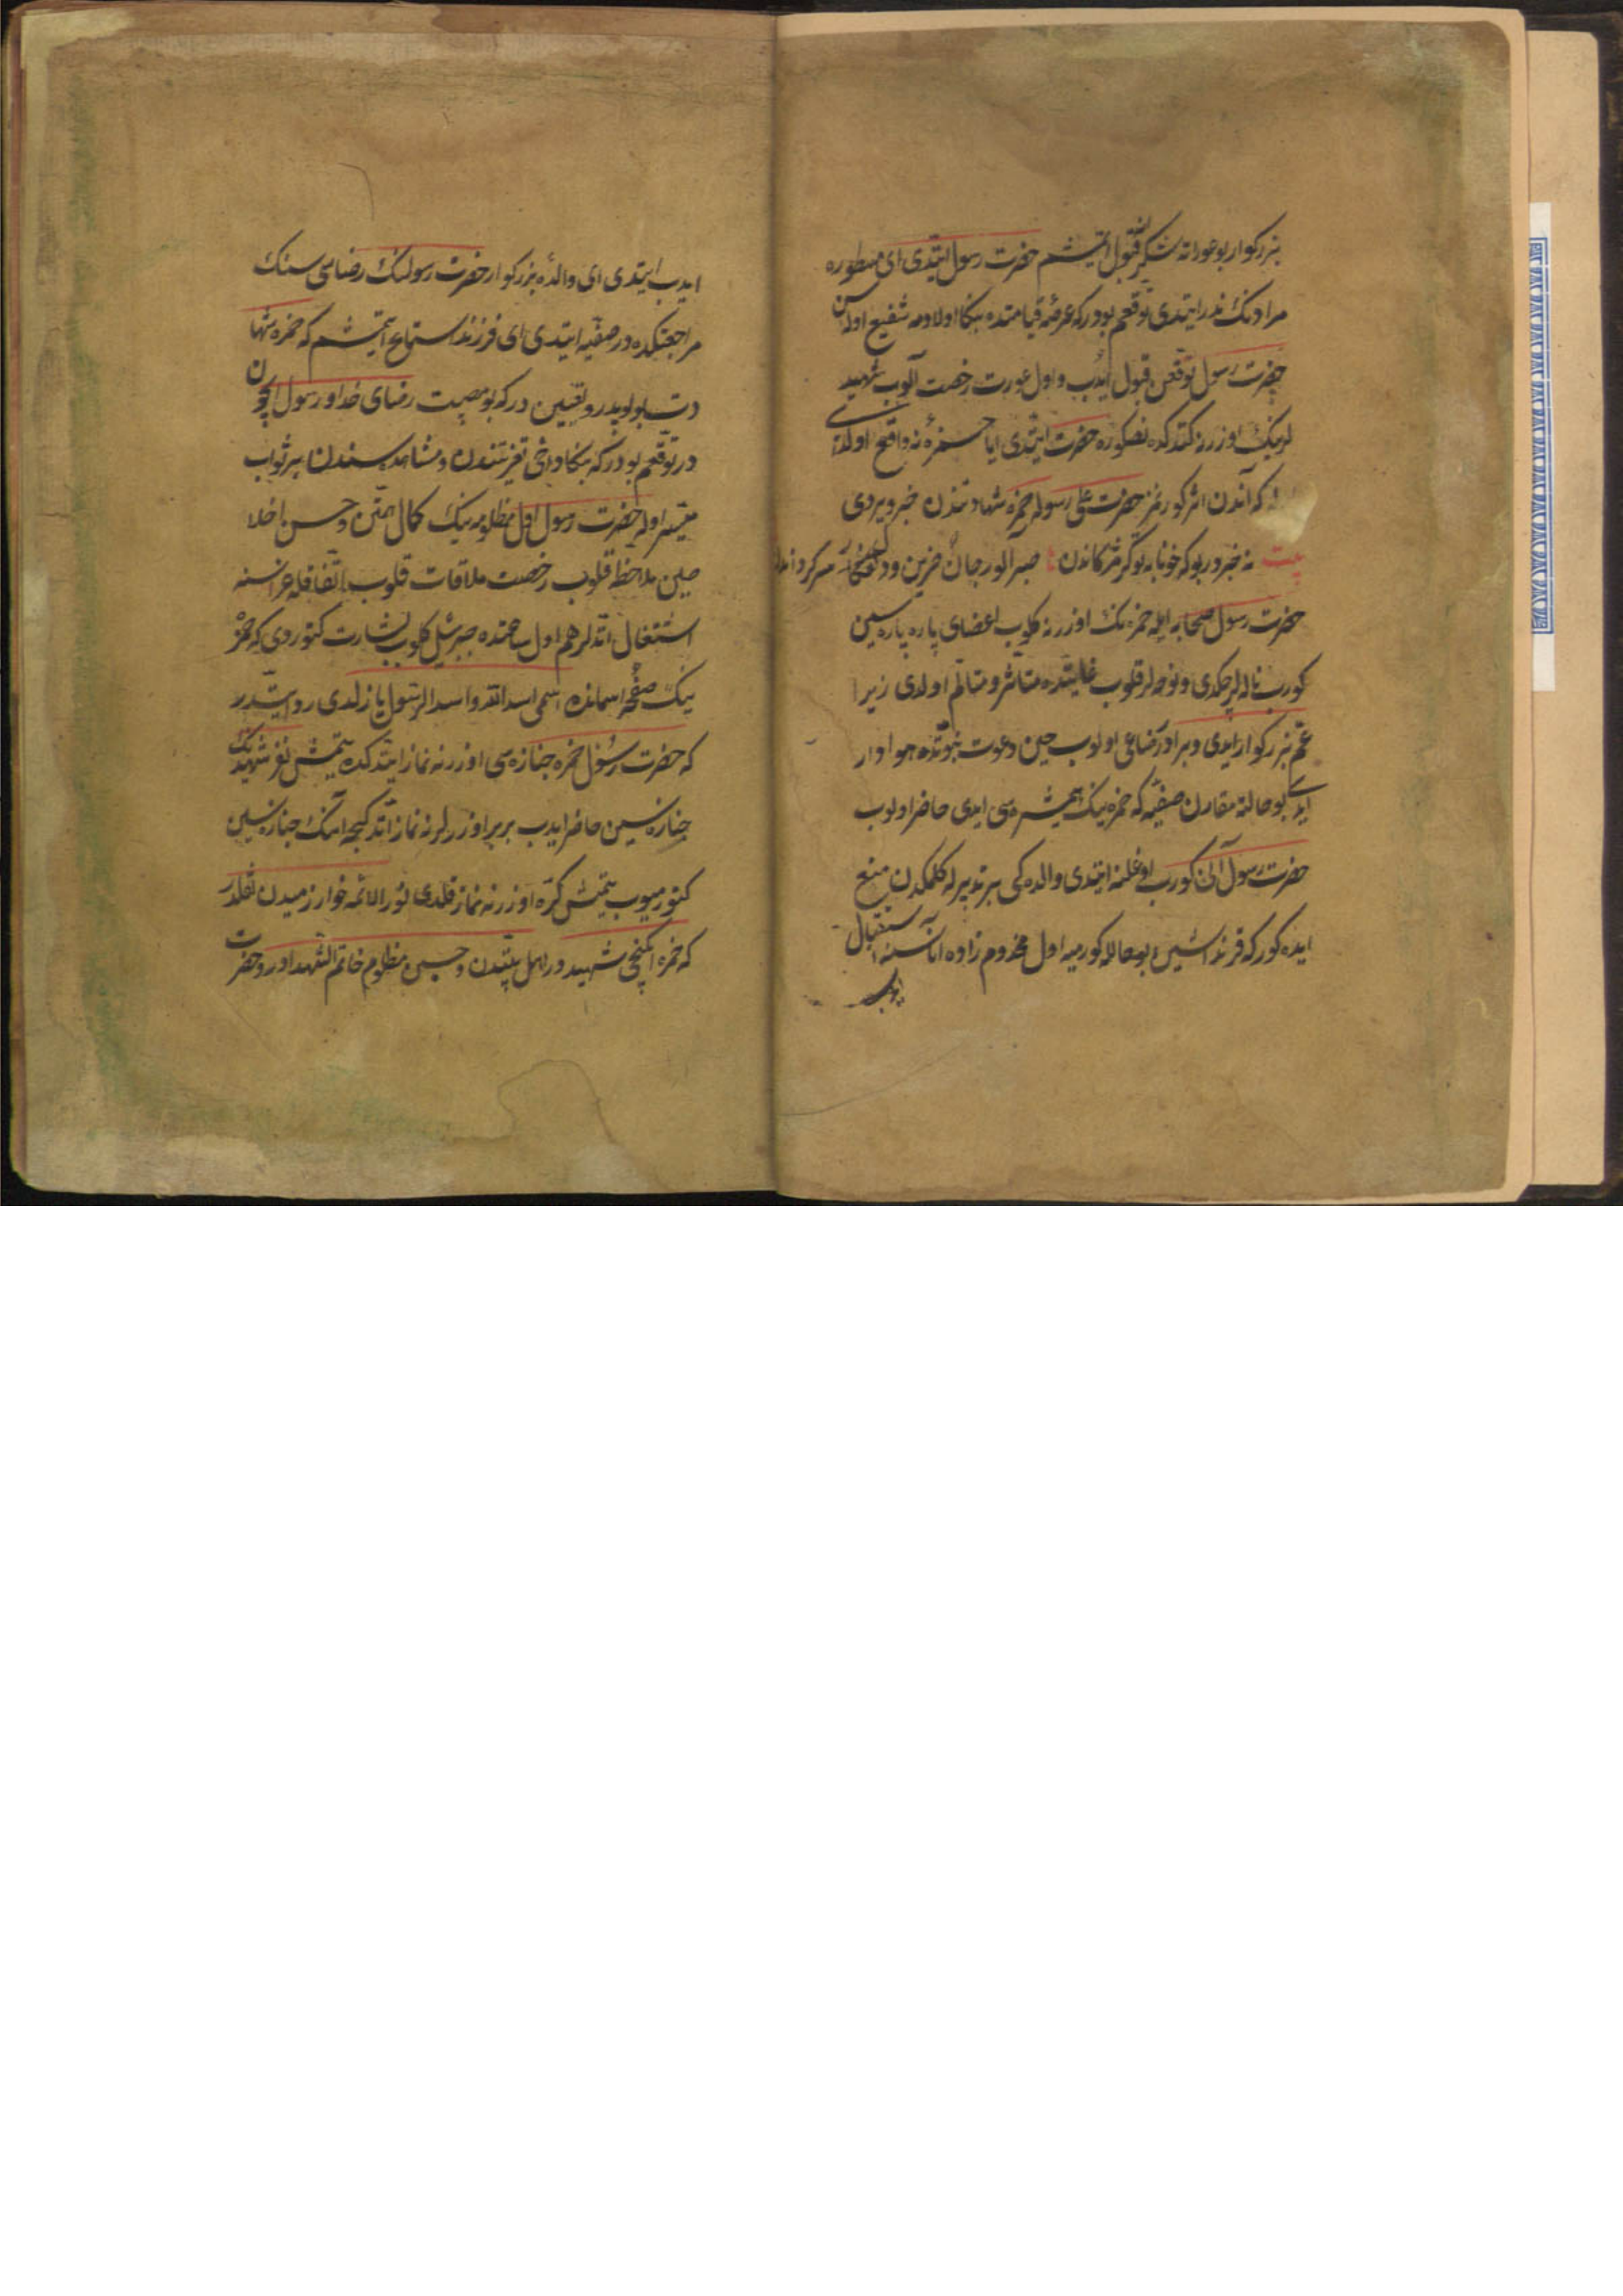 بزرکوار بو عورانه شکر قبول ایتمشم حضرت رسول ایتدی ای مسطوره
مرادنک ندر ایتدی توقعم بودر که عرصهٔ قیامتده بکا اولادمه شفیع اولاسن
حضرت رسول توقعن قبول ایدب و اول عورت رخصت آلوب شهید
لرینک اوزرنه کتدکده حضرت ایتدی ایا حمزه‌ٔ نه واقع اولدی
که آندن اثر کورنمز حضرت علی رسوله حمزه شهادتندن خبر ویردی
بیت نه خبردر بو که خونابه توکر مژکاندن صبر آلور جان حزین و دل
حضرت رسول صحابه ایله حمزه نک اوزرنه کلوب اعضای پاره پاره سین
کورب ناله لر چکدی و نوحه لر قلوب غایتده متأثر و متألم اولدی زیرا
عم بزرکوار ایدی و برادر رضاعی اولوب حین دعوت نبوتده هوادار
ایدی بو حالته مقارن صفیه که حمزه نیک همشیره سی ایدی حاضر اولوب
حضرت رسول آنی کورب اوغلنه ایتدی والده کی بر تدبیر له کلمکدن منع
ایده کور که قرنداشین بو حالله کورمیه اول مخدوم زاده اناسنه استقبال
ایدب
ایدب ایتدی ای والدهٔ بزرکوار حضرت رسولنک رضاسی سنک
مراجعتکده در صفیه ایتدی ای فرزند استماع ایتمشم که حمزه شهادت
بولوبدر و یقین در که بو مصیبت رضای خدا و رسول ایچون
در توقعم بودر که بکا داخی تعزیتندن و مشاهده سندن بر ثواب
میسر اوله حضرت رسول اول مظلومه نیک کمال و حسن اخلا
صین ملاحظه قلوب رخصت ملاقات قلوب اتفاقله عزاسنه
اشتغال اتدلر هم اول ساعتده جبرئیل کلوب بشارت کتوردی که حمزه
نیک صفحهٔ اسمانده اسمی اسد الله و اسد الرسول یازلدی روایتدر
که حضرت رسول حمزه جنازه سی اوزرنه نماز ایتدکده یتمش نفر شهیدنک
جنازه سین حاضر ایدب بر بر اوزرلرنه نماز اتدکجه آنک جنازه سین
کتورمیوب یتمش کره اوزرنه نماز قلدی نور الائمه خوارزمیدن نقلدر
که حمزه ایکنجی شهیددر اهل بیتدن و حسین مظلوم خاتم الشهدادر و حضرت